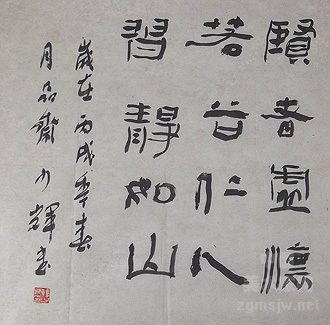 賢者虛懷
若谷仁人
習靜如山
歲在丙戌季春
月品齋少輝书
zgmsjw.net